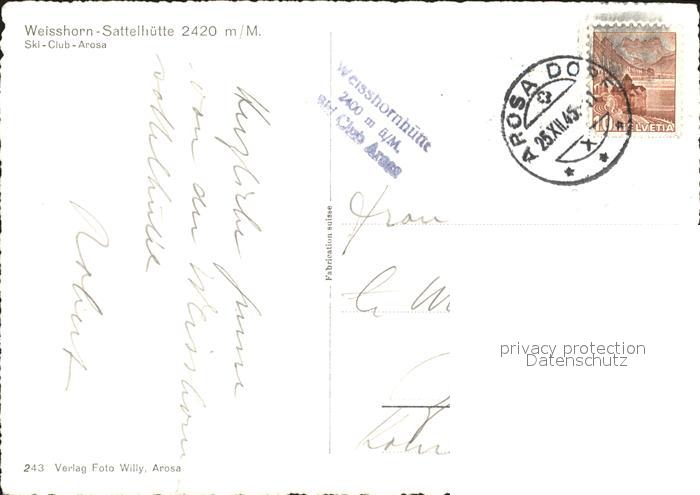 Weisshorn-Sattelhütte 2420 m/M.
Ski-Club-Arosa
Herzliche
von der Weisshorn
sattelhütte
Robert
Weisshornhütte
2400 m ü/M.
Ski Club Arosa
AROSA DORF
25.XII.45
10 HELVETIA
Fabrication suisse
Frau
privacy protection
Datenschutz
243 Verlag Foto Willy, Arosa